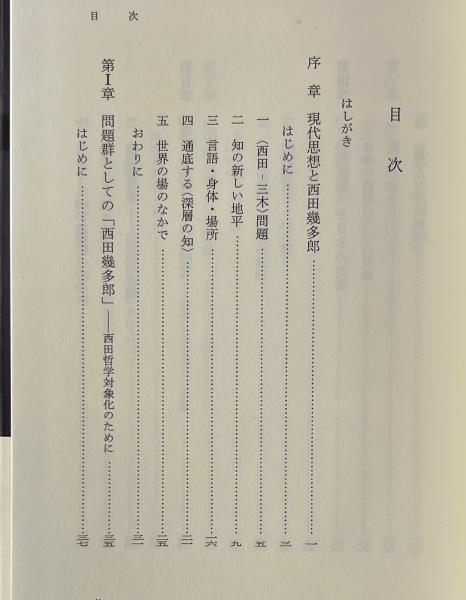 目次
目次
はしがき
序章 現代思想と西田幾多郎……一
はじめに……三
一 〈西田－三木〉問題……五
二 知の新しい地平……九
三 言語・身体・場所……一六
四 通底する〈深層の知〉……二一
五 世界の場のなかで……二五
おわりに……三一
第Ⅰ章 問題群としての「西田幾多郎」——西田哲学対象化のために……三五
はじめに……三七